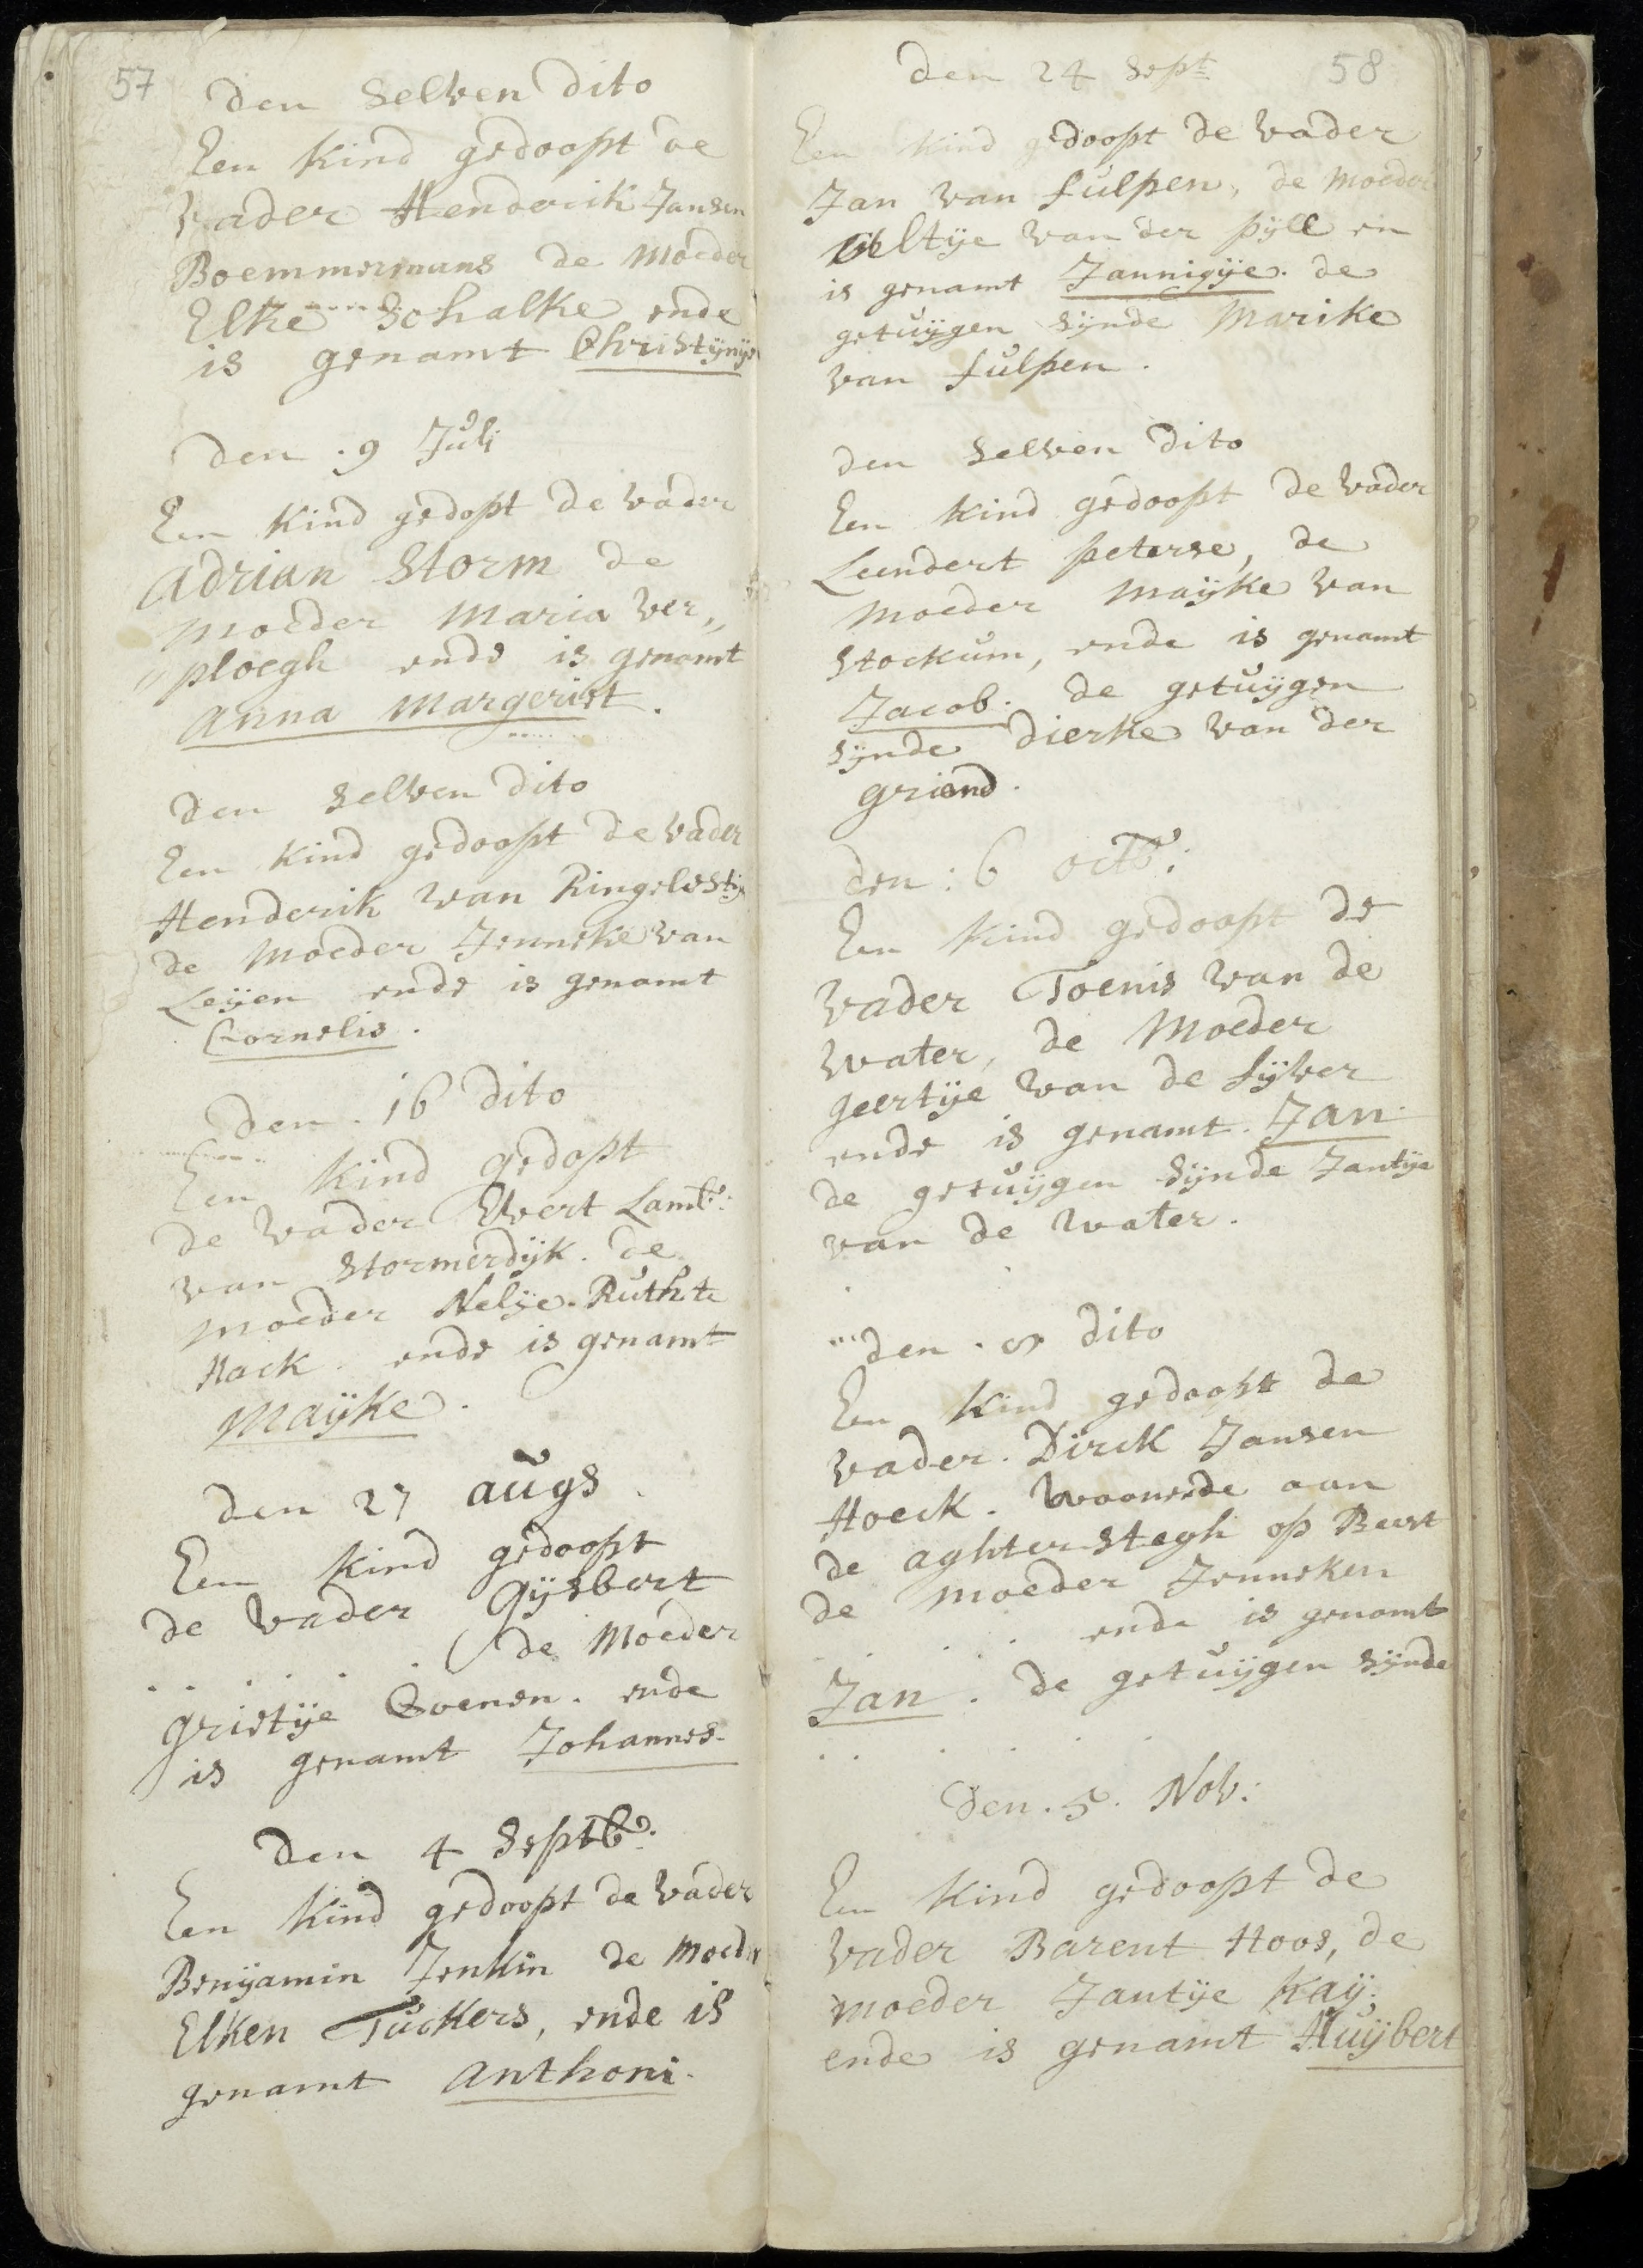 57
den selven dito
Een kind gedoopt de
vader Henderik Jansen
Boemmermans de moeder
Elke Schalke ende
is genamt Christÿnÿe
den . 9 Juli
Een kind gedopt de vader
Adrian Storm de
moeder Maria ver„
„ploegh ende is genamt
Anna Margeriet.
den selven dito
Een kind gedoopt de vader
Henderik van Ringelesti
de moeder Jenneke van
Leÿen ende is genamt
Cornelis.
den . 16 dito
Een kind gedopt
de vader Evert Lamb:
van Stormerdÿk. de
moeder Nelÿe. Ruth te
Hack. ende is genamt
Maÿke.
den 27 augs.
Een kind gedoopt
de vader Gÿsbert
. . . . . de moeder
Grietÿe Coenen. ende
is genamt Johannes.
den 4 Septb.
Een kind gedoopt de vader
Benÿamin Jenkin de moeder
Elken Tuckers, ende is
genamt Anthoni.
58
den 24 Sept
Een kind gedoopt de vader
Jan van fulpen, de moeder
eltÿe van der pÿll en
is genamt Jannigÿe. de
getuÿgen sÿnde Marike
van fulpen.
den selven dito
Een kind gedoopt de vader
Leendert peterse, de
moeder Maÿke van
Stockum, ende is genamt
Jacob. de getuÿgen
sÿnde dierke van der
griend.
den : 6 octb:
Een kind gedoopt de
vader Toenis van de
water, de Moeder
geertÿe van de fÿver
ende is genamt. Jan.
de getuÿgen sÿnde Jantÿe
van de water.
den . 8 dito
Een kind gedoopt de
vader. Dirck Jansen
Hoeck. woonende aan
de aghterstegh op Beest
de moeder Jenneken
. . . ende is genamt
Jan. de getuÿgen sÿnde
. . . . . .
den. 5. Nov:
Een kind gedoopt de
vader Barent Hoos, de
moeder Jantÿe Kaÿ:
ende is genamt Huÿbert